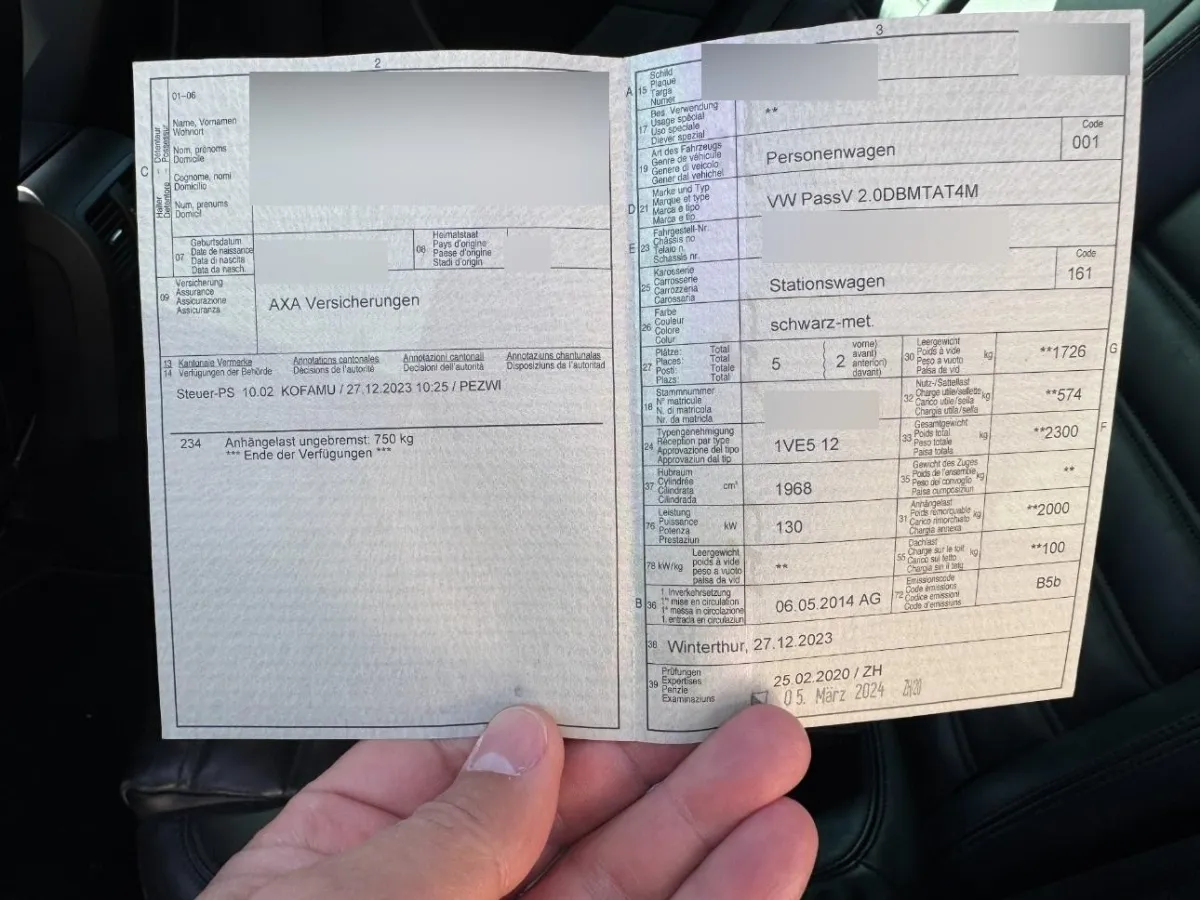 2
C
Halter
Détenteur
Detentore
Possessur
01–06
Name, Vornamen
Wohnort
Nom, prénoms
Domicile
Cognome, nomi
Domicilio
Num, prenums
Domicil
07
Geburtsdatum
Date de naissance
Data di nascita
Data da nasch.
08
Heimatstaat
Pays d'origine
Paese d'origine
Stadi d'origin
09
Versicherung
Assurance
Assicurazione
Assicuranza
AXA Versicherungen
13 Kantonale Vermerke
14 Verfügungen der Behörde
Annotations cantonales
Décisions de l'autorité
Annotazioni cantonali
Decisioni dell'autorità
Annotaziuns chantunalas
Disposiziuns da l'autoritad
Steuer-PS 10.02 KOFAMU / 27.12.2023 10:25 / PEZWI
234 Anhängelast ungebremst: 750 kg
*** Ende der Verfügungen ***
3
A 15
Schild
Plaque
Targa
Numer
17
Bes. Verwendung
Usage spécial
Uso speciale
Diever spezial
**
19
Art des Fahrzeugs
Genre de véhicule
Genere di veicolo
Gener dal vehichel
Personenwagen
Code
001
D 21
Marke und Typ
Marque et type
Marca e tipo
Marca e tip
VW PassV 2.0DBMTAT4M
E 23
Fahrgestell-Nr.
Châssis no
Telaio n.
Schassis nr.
25
Karosserie
Carrosserie
Carrozzeria
Carossaria
Stationswagen
Code
161
26
Farbe
Couleur
Colore
Colur
schwarz-met.
27
Plätze: Total
Places: Total
Posti: Totale
Plazs: Total
5
2
vorne)
avant)
anteriori)
davant)
G 30
Leergewicht
Poids à vide
Peso a vuoto
Paisa da vid
kg
**1726
18
Stammnummer
N° matricule
N. di matricola
Nr. da matricla
32
Nutz-/Sattellast
Charge utile/sellette
Carico utile/sella
Chargia utila/sella
kg
**574
24
Typengenehmigung
Réception par type
Approvazione del tipo
Approvaziun dal tip
1VE5 12
F 33
Gesamtgewicht
Poids total
Peso totale
Paisa totala
kg
**2300
37
Hubraum
Cylindrée
Cilindrata
Cilindrada
cm³
1968
35
Gewicht des Zuges
Poids de l'ensemble
Peso del convoglio
Paisa cumposiziun
kg
**
76
Leistung
Puissance
Potenza
Prestaziun
kW
130
31
Anhängelast
Poids remorquable
Carico rimorchiato
Chargia annexa
kg
**2000
78 kW/kg
Leergewicht
poids à vide
peso a vuoto
paisa da vid
**
55
Dachlast
Charge sur le toit
Carico sul tetto
Chargia sin il tetg
kg
**100
B 36
1. Inverkehrsetzung
1re mise en circulation
1a messa in circolazione
1. entrada en circulaziun
06.05.2014 AG
72
Emissionscode
Code émissions
Codice emissioni
Code d'emissiuns
B5b
38 Winterthur, 27.12.2023
39
Prüfungen
Expertises
Perizie
Examinaziuns
25.02.2020 / ZH
05. März 2024